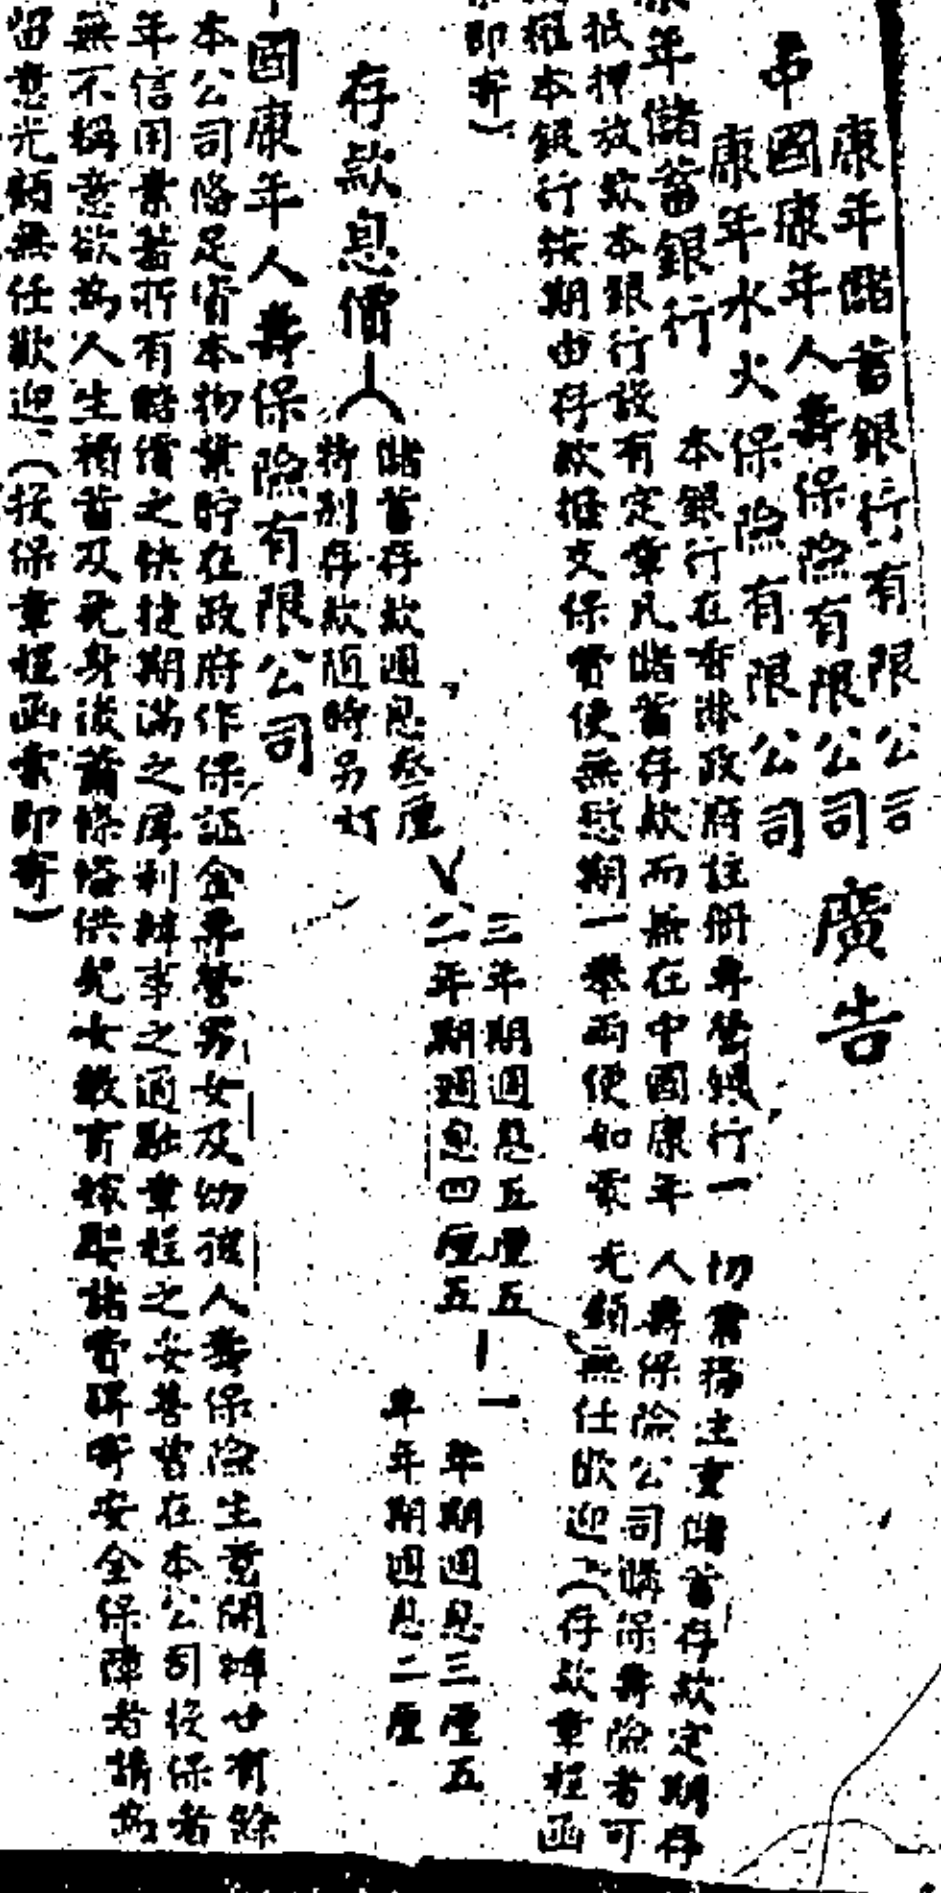 康年儲蓄銀行有限公司
中國康年人壽保險有限公司 廣告
康年水火保險有限公司
康年儲蓄銀行
本銀行在香港政府註册專營銀行一切業務主要儲蓄存款定期存
抵押放款本銀行設有定章凡儲蓄存款而無在中國康年人壽保險公司購保壽險者可
權本銀行按期由存款撥支保費使無愆期一舉兩便如蒙光顧無任歡迎(存款章程函
即寄)
存款息價
儲蓄存款週息叁厘
特別存款随時另訂
三年期週息五厘五
二年期週息四厘五
一年期週息三厘五
半年期週息二厘
國康年人壽保險有限公司
本公司俻足資本物業貯在政府作保証金專營男女及幼孩人壽保險生意開辦廿有餘
年信用素著所有賠償之快捷期滿之厚利辦事之通融章程之妥善曾在本公司投保者
無不稱意欲為人生積蓄及死身後蕭條俻供兒女教育嫁娶諸費 安全保障者請為
留意光顧無任歡迎(投保章程函索即寄)